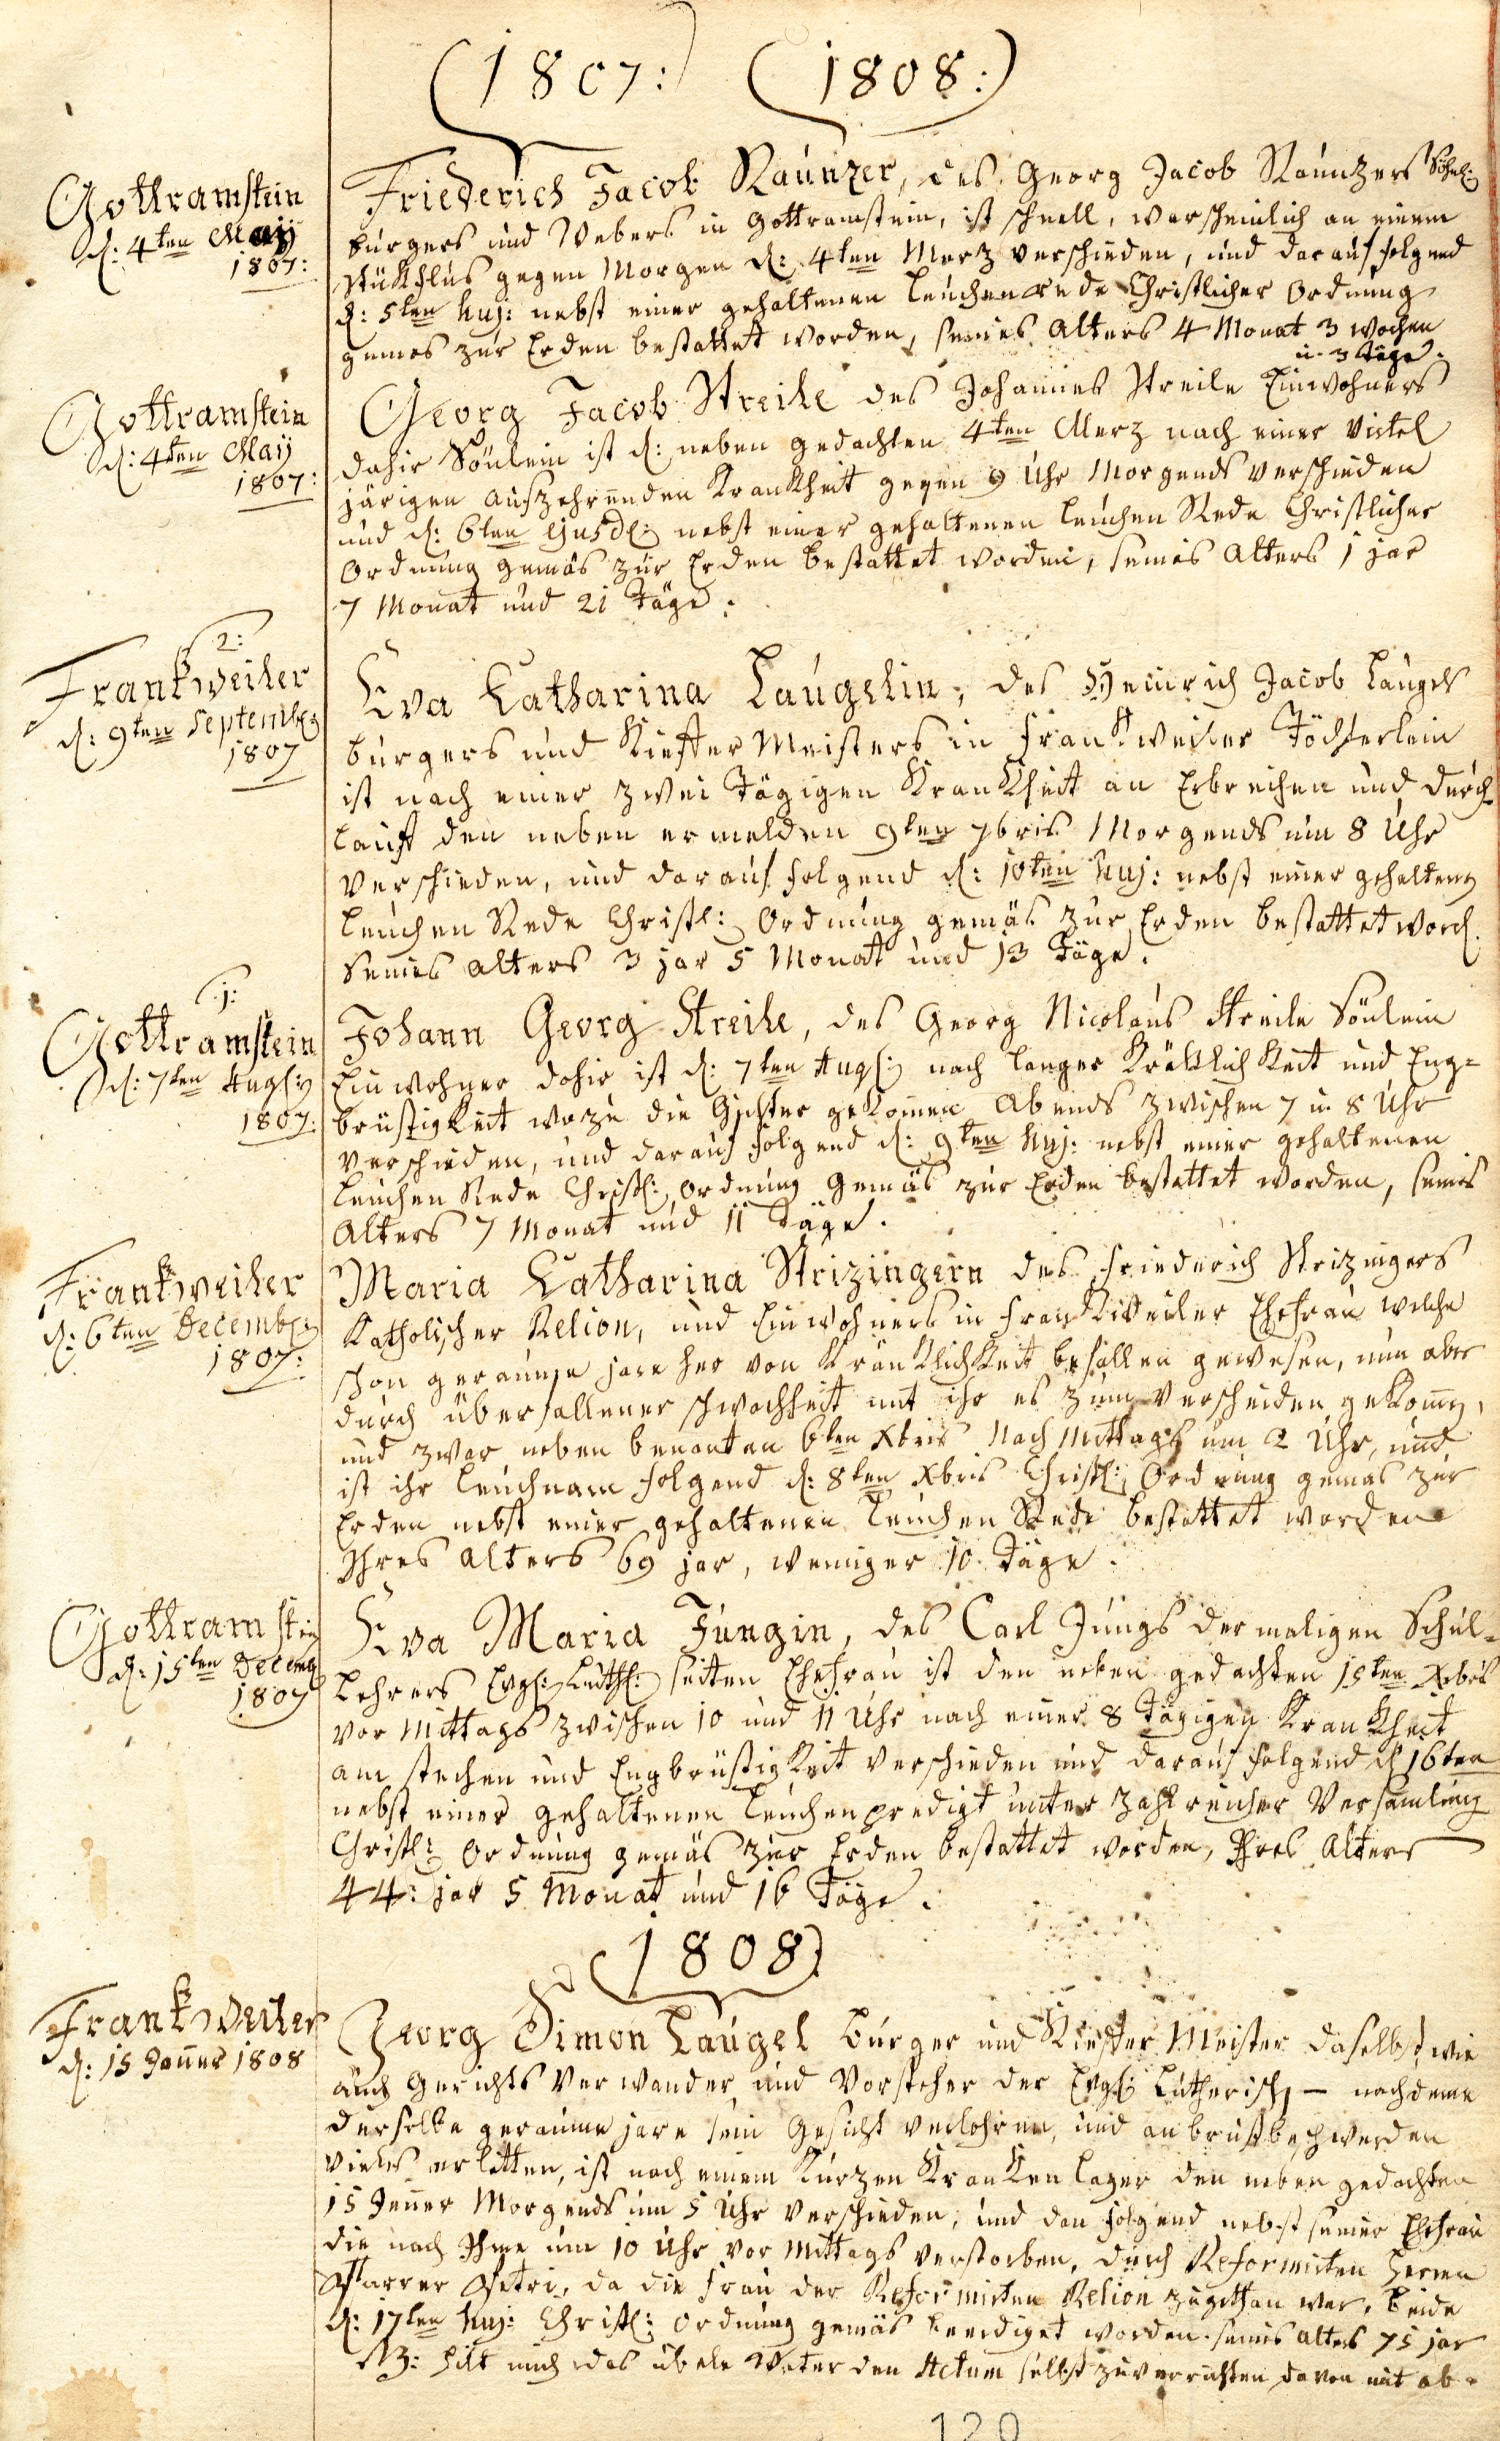 1807: 1808:
Gottramstein
d: 4ten Maij
1807:
Friederich Jacob Raunzer, des Georg Jacob Raunzers Söhnl:
burgers und Webers in Gottramstein, ist schnell, warscheinlich an einem
stükflus gegen Morgen d: 4ten Merz verschieden, und darauf folgend
d: 5ten huj: nebst einer gehaltenen Leuchenrede Christlicher Ordnung
gemes zur Erden bestattet worden, seines Alters 4 Monat 3 wochen
u. 3 Täge.
Gottramstein
d: 4ten Maij
1807:
Georg Jacob Streile des Johannes Streile Einwohners
dahir Sönlein ist d: neben gedachten 4ten Merz nach einer viertel
järigen auszehrenden Krankheit gegen 9 Uhr Morgends verschieden
und d: 6ten Ejusd: nebst einer gehaltenen Leuchen Rede Christlicher
Ordnung gemäs zur Erden bestattet worden, seines Alters 1 jar
7 Monat und 21 Täge.
2:
Frankweiler
d: 9ten Septemb:
1807
Eva Catharina Laugelin, des Heinrich Jacob Laugels
burgers und Kieffer Meisters in Frankweiler Töchterlein
ist nach einer zwei Tägigen Krankheit an Erbrechen und Durch-
lauft den neben ermelden 9ten 7bris Morgends um 8 Uhr
verschieden, und darauf folgend d: 10ten huj: nebst einer gehaltenen
Leuchen Rede Christl: Ordnung gemäs zur Erden bestattet word.
Seines Alters 3 jar 5 Monat und 13 Täge.
1:
Gottramstein
d: 7ten Aug:
1807:
Johann Georg Streile, des Georg Nicolaus Streile Sönlein
Einwohner dahir ist d: 7ten Aug: nach langer Kräklichkeit und Eng=
brüstigkeit wozu die Gichter gekomen Abends zwischen 7 u. 8 Uhr
verschieden, und darauf folgend d: 9ten huj: nebst einer gehaltenen
Leuchen Rede Christl: Ordnung Gemäs zur Erden bestattet worden, seines
Alters 7 Monat und 11 Täge.
Frankweiler
d: 6ten Decemb:
1807:
Maria Catharina Strizingern des Friederich Strizingers
Katholischer Relion, und Einwohners in Frankweiler Ehefrau welche
schon geraume jare her von Kränklichkeit befallen gewesen, nun aber
durch überfallener schwachheit mit ihr es zum verscheiden gekomen,
und zwar neben benanten 6ten Xbris Nach Mittags um 2 Uhr, und
ist ihr Leuchnam folgend d: 8ten Xbris Christl: Ordnung gemäs zur
Erden nebst einer gehaltenen Leuchen Rede bestattet worden
Ihres Alters 69 jar, weniger 10 Täge.
Gottramstein
d: 15ten Decemb
1807
Eva Maria Jungin, des Carl Jungs dermaligen Schul=
Lehrers Evgl: Luth: seiten Ehefrau ist den neben gedachten 15ten Xbris
vor Mittags zwischen 10 und 11 Uhr nach einer 8 Tägigen Krankheit
am stechen und Engbrüstigkeit verschieden und darauf folgend d 16ten
nebst einer gehaltenen Leuchenpredigt unter zahlreicher Versamlung
Christl: Ordnung gemäs zur Erden bestattet worden, Ihres Alters
44: jar 5 Monat und 16 Täge.
1808
Frankweiler
d: 15 Jenner 1808
Georg Simon Laugel burger und Kieffer Meister daselbst, wie
auch Gerichts Verwander und Vorsteher der Evgl: Lutherisch, – nachdeme
derselbe geraume jare sein Gesicht verlohren, und an brustbeschwerden
vieles erlitten, ist nach einem kurzen Kranken lager den neben gedachten
15 Jener Morgends um 5 Uhr verschieden, und dan folgend nebst seiner Ehefrau
die nach Ihme um 10 Uhr vor Mittags verstorben, durch Reformirten Herren
Pfarrer Petri, da die Frau der Reformirten Relion zugethan war, beide
d: 17ten huj: Christl: Ordnung gemäs beerdiget worden. seines Alters 75 jar
NB: hilt mich das übele Weter den Actum selbst zuverrichten davon mit ab.
120